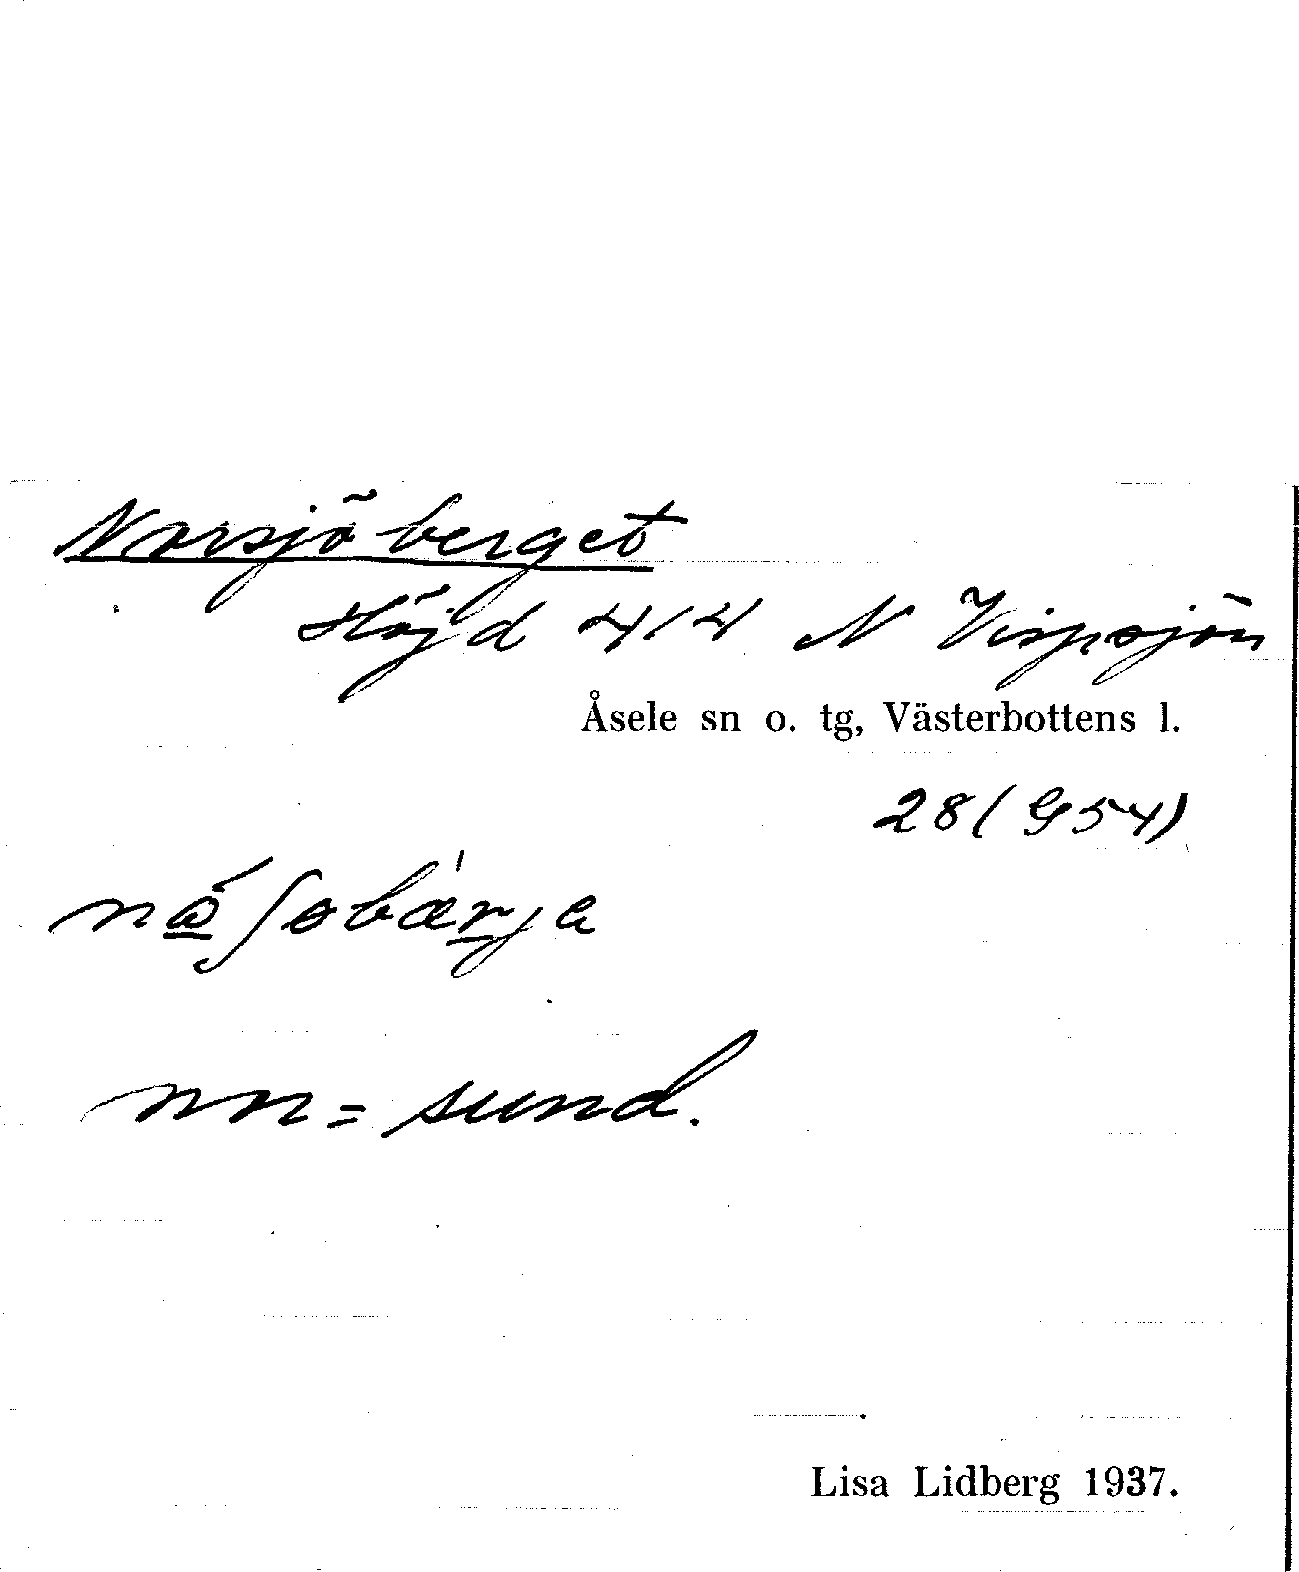 Norsjöberget
Höjd 414 N Vispsjön
Åsele sn o. tg, Västerbottens l.
28 (G54)
nn = sund.
Lisa Lidberg 1937.